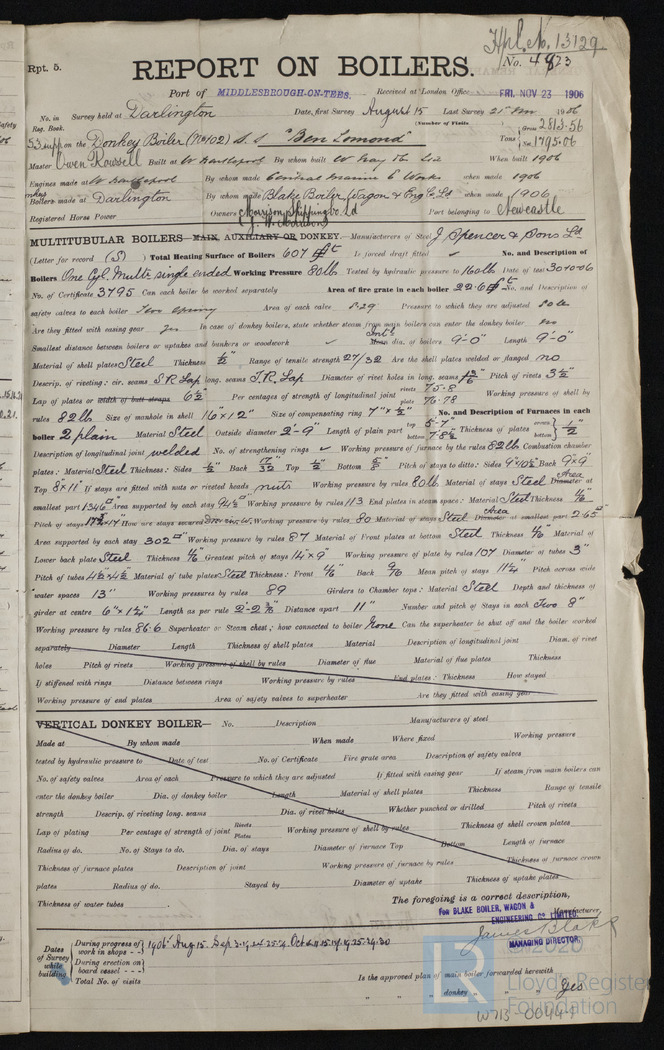 Hpl. No. 13129
Rpt. 5.
No. 4823
REPORT ON BOILERS.
Port of MIDDLESBROUGH-ON-TEES. Received at London Office FRI. NOV 23 1906
No. in Reg. Book. Survey held at Darlington Date, first Survey August 15 Last Survey 1906
(Number of Visits
53 supp on the Donkey Boiler (No 102) S. S. "Ben Lomond" Tons Gross 2813.56 Net 1795.06
Master Owen Rowsell Built at W Hartlepool By whom built W Gray & Co Ltd When built 1906
Engines made at W Hartlepool By whom made Central Marine E Works when made 1906
Boilers made at Darlington By whom made Blake Boiler, Wagon & Eng Co Ld when made 1906
Registered Horse Power Owners Morrison Shipping Co Ld Port belonging to Newcastle
MULTITUBULAR BOILERS MAIN, AUXILIARY OR DONKEY.— Manufacturers of Steel J Spencer & Sons Ld
(Letter for record (S) ) Total Heating Surface of Boilers 607 ft Is forced draft fitted ✓ No. and Description of
Boilers One Cyl. Multr. single ended Working Pressure 80 lb Tested by hydraulic pressure to 160 lb Date of test 30.10.06
No. of Certificate 3795 Can each boiler be worked separately Area of fire grate in each boiler 22.6 ft No. and Description of
safety valves to each boiler Two spring Area of each valve 8.29 Pressure to which they are adjusted 80 lb
Are they fitted with easing gear yes In case of donkey boilers, state whether steam from main boilers can enter the donkey boiler no
Smallest distance between boilers or uptakes and bunkers or woodwork ✓ Mean dia. of boilers 9'-0" Length 9'-0"
Material of shell plates Steel Thickness 1/2" Range of tensile strength 27/32 Are the shell plates welded or flanged no
Descrip. of riveting: cir. seams S.R. Lap long. seams T.R. Lap Diameter of rivet holes in long. seams 13/16" Pitch of rivets 3 1/2"
Lap of plates or width of butt straps 6 1/2" Per centages of strength of longitudinal joint rivets 75.8 plate 76.78 Working pressure of shell by
rules 82 lb Size of manhole in shell 16" x 12" Size of compensating ring 7" x 1/2" No. and Description of Furnaces in each
boiler 2 plain Material Steel Outside diameter 2'-9" Length of plain part top 5'-7" bottom Thickness of plates crown bottom 1/2"
Description of longitudinal joint welded No. of strengthening rings ✓ Working pressure of furnace by the rules 82 lb Combustion chamber
plates: Material Steel Thickness: Sides 1/2" Back 17/32" Top 1/2" Bottom 5/8" Pitch of stays to ditto: Sides Back 9" x 9"
Top 8" x 11" If stays are fitted with nuts or riveted heads nuts Working pressure by rules 80 lb Material of stays Steel Diameter Area at
smallest part Area supported by each stay 94 1/2 Working pressure by rules 113 End plates in steam space: Material Steel Thickness
Pitch of stays How are stays secured Working pressure by rules 80 Material of stays Steel Diameter Area at smallest part 2.65
Area supported by each stay 302 Working pressure by rules 87 Material of Front plates at bottom Steel Thickness Material of
Lower back plate Steel Thickness Greatest pitch of stays 14" x 9" Working pressure of plate by rules 107 Diameter of tubes 3"
Pitch of tubes 4 1/2 x 4 1/2 Material of tube plates Steel Thickness: Front Back Mean pitch of stays 11 1/4" Pitch across wide
water spaces 13" Working pressures by rules 89 Girders to Chamber tops: Material Steel Depth and thickness of
girder at centre 6" x 1 1/2" Length as per rule Distance apart 11" Number and pitch of Stays in each Two 8"
Working pressure by rules 86.6 Superheater or Steam chest; how connected to boiler None Can the superheater be shut off and the boiler worked
separately Diameter Length Thickness of shell plates Material Description of longitudinal joint Diam. of rivet
holes Pitch of rivets Working pressure of shell by rules Diameter of flue Material of flue plates Thickness
If stiffened with rings Distance between rings Working pressure by rules End plates: Thickness How stayed
Working pressure of end plates Area of safety valves to superheater Are they fitted with easing gear
VERTICAL DONKEY BOILER— No. Description Manufacturers of steel
Made at By whom made When made Where fixed Working pressure
tested by hydraulic pressure to Date of test No. of Certificate Fire grate area Description of safety valves
No. of safety valves Area of each Pressure to which they are adjusted If fitted with easing gear If steam from main boilers can
enter the donkey boiler Dia. of donkey boiler Length Material of shell plates Thickness Range of tensile
strength Descrip. of riveting long. seams Dia. of rivet holes Whether punched or drilled Pitch of rivets
Lap of plating Per centage of strength of joint Rivets Plates Working pressure of shell by rules Thickness of shell crown plates
Radius of do. No. of Stays to do. Dia. of stays Diameter of furnace Top Bottom Length of furnace
Thickness of furnace plates Description of joint Working pressure of furnace by rules Thickness of furnace crown
plates Radius of do. Stayed by Diameter of uptake Thickness of uptake plates
Thickness of water tubes
The foregoing is a correct description,
FOR BLAKE BOILER, WAGON & ENGINEERING CO LIMITED. Manufacturer.
James Blake
MANAGING DIRECTOR.
Dates of Survey while building
During progress of work in shops - - 1906 Aug 15. Sep 3.19.24.25.29. Oct 6.11.15.17.19.25.29.30
During erection on board vessel - - -
Total No. of visits
Is the approved plan of main boiler forwarded herewith
" " " donkey " " " yes
© 2020
Lloyd's Register
Foundation
W713-0044-1